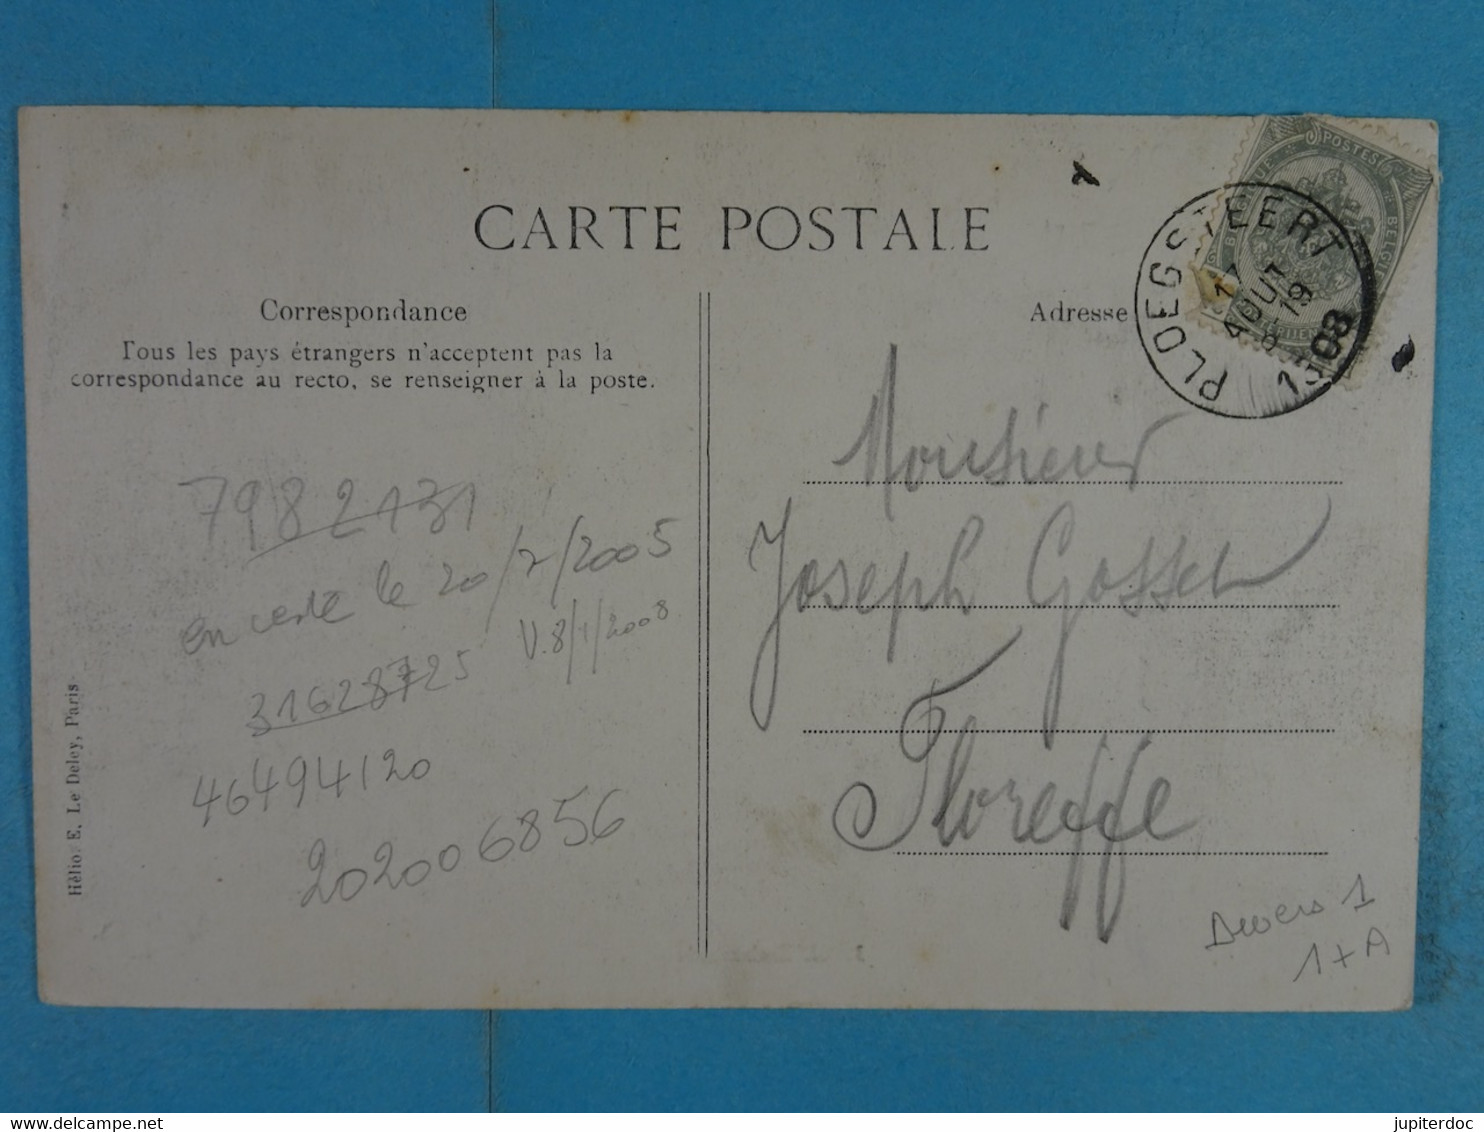 CARTE POSTALE
Correspondance
Tous les pays étrangers n'acceptent pas la
correspondance au recto, se renseigner à la poste.
7982131
en vente le 20/7/2005
V.8/1/2008
31628725
46494120
202006856
Hélio. E. Le Deley, Paris
Adresse
POSTES
BELGIE
PLOEGSTEERT
17
AOUT
19
1908
Monsieur
Joseph Gosset
Floreffe
Divers 1
1+A
jupiterdoc